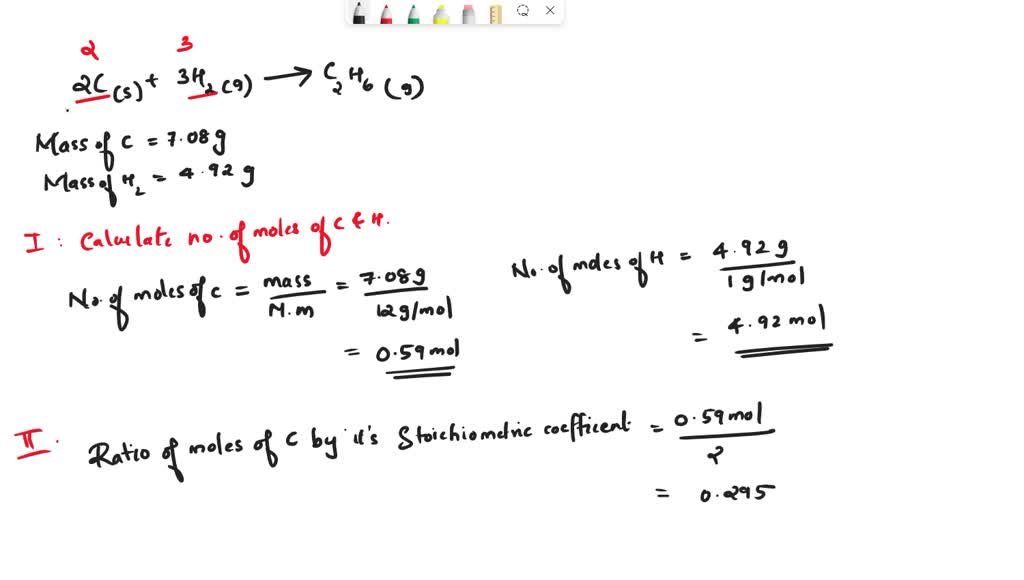 2 3
2C (s) + 3H2 (g) → C2H6 (g)
Mass of C = 7.08g
Mass of H2 = 4.92 g
I : Calculate no. of moles of C & H.
No. of moles of C = mass / M.m = 7.08g / 12g/mol
= 0.59 mol
No. of moles of H = 4.92 g / 1 g/mol
= 4.92 mol
II. Ratio of moles of C by it's Stoichiometric coefficent = 0.59 mol / 2
= 0.295